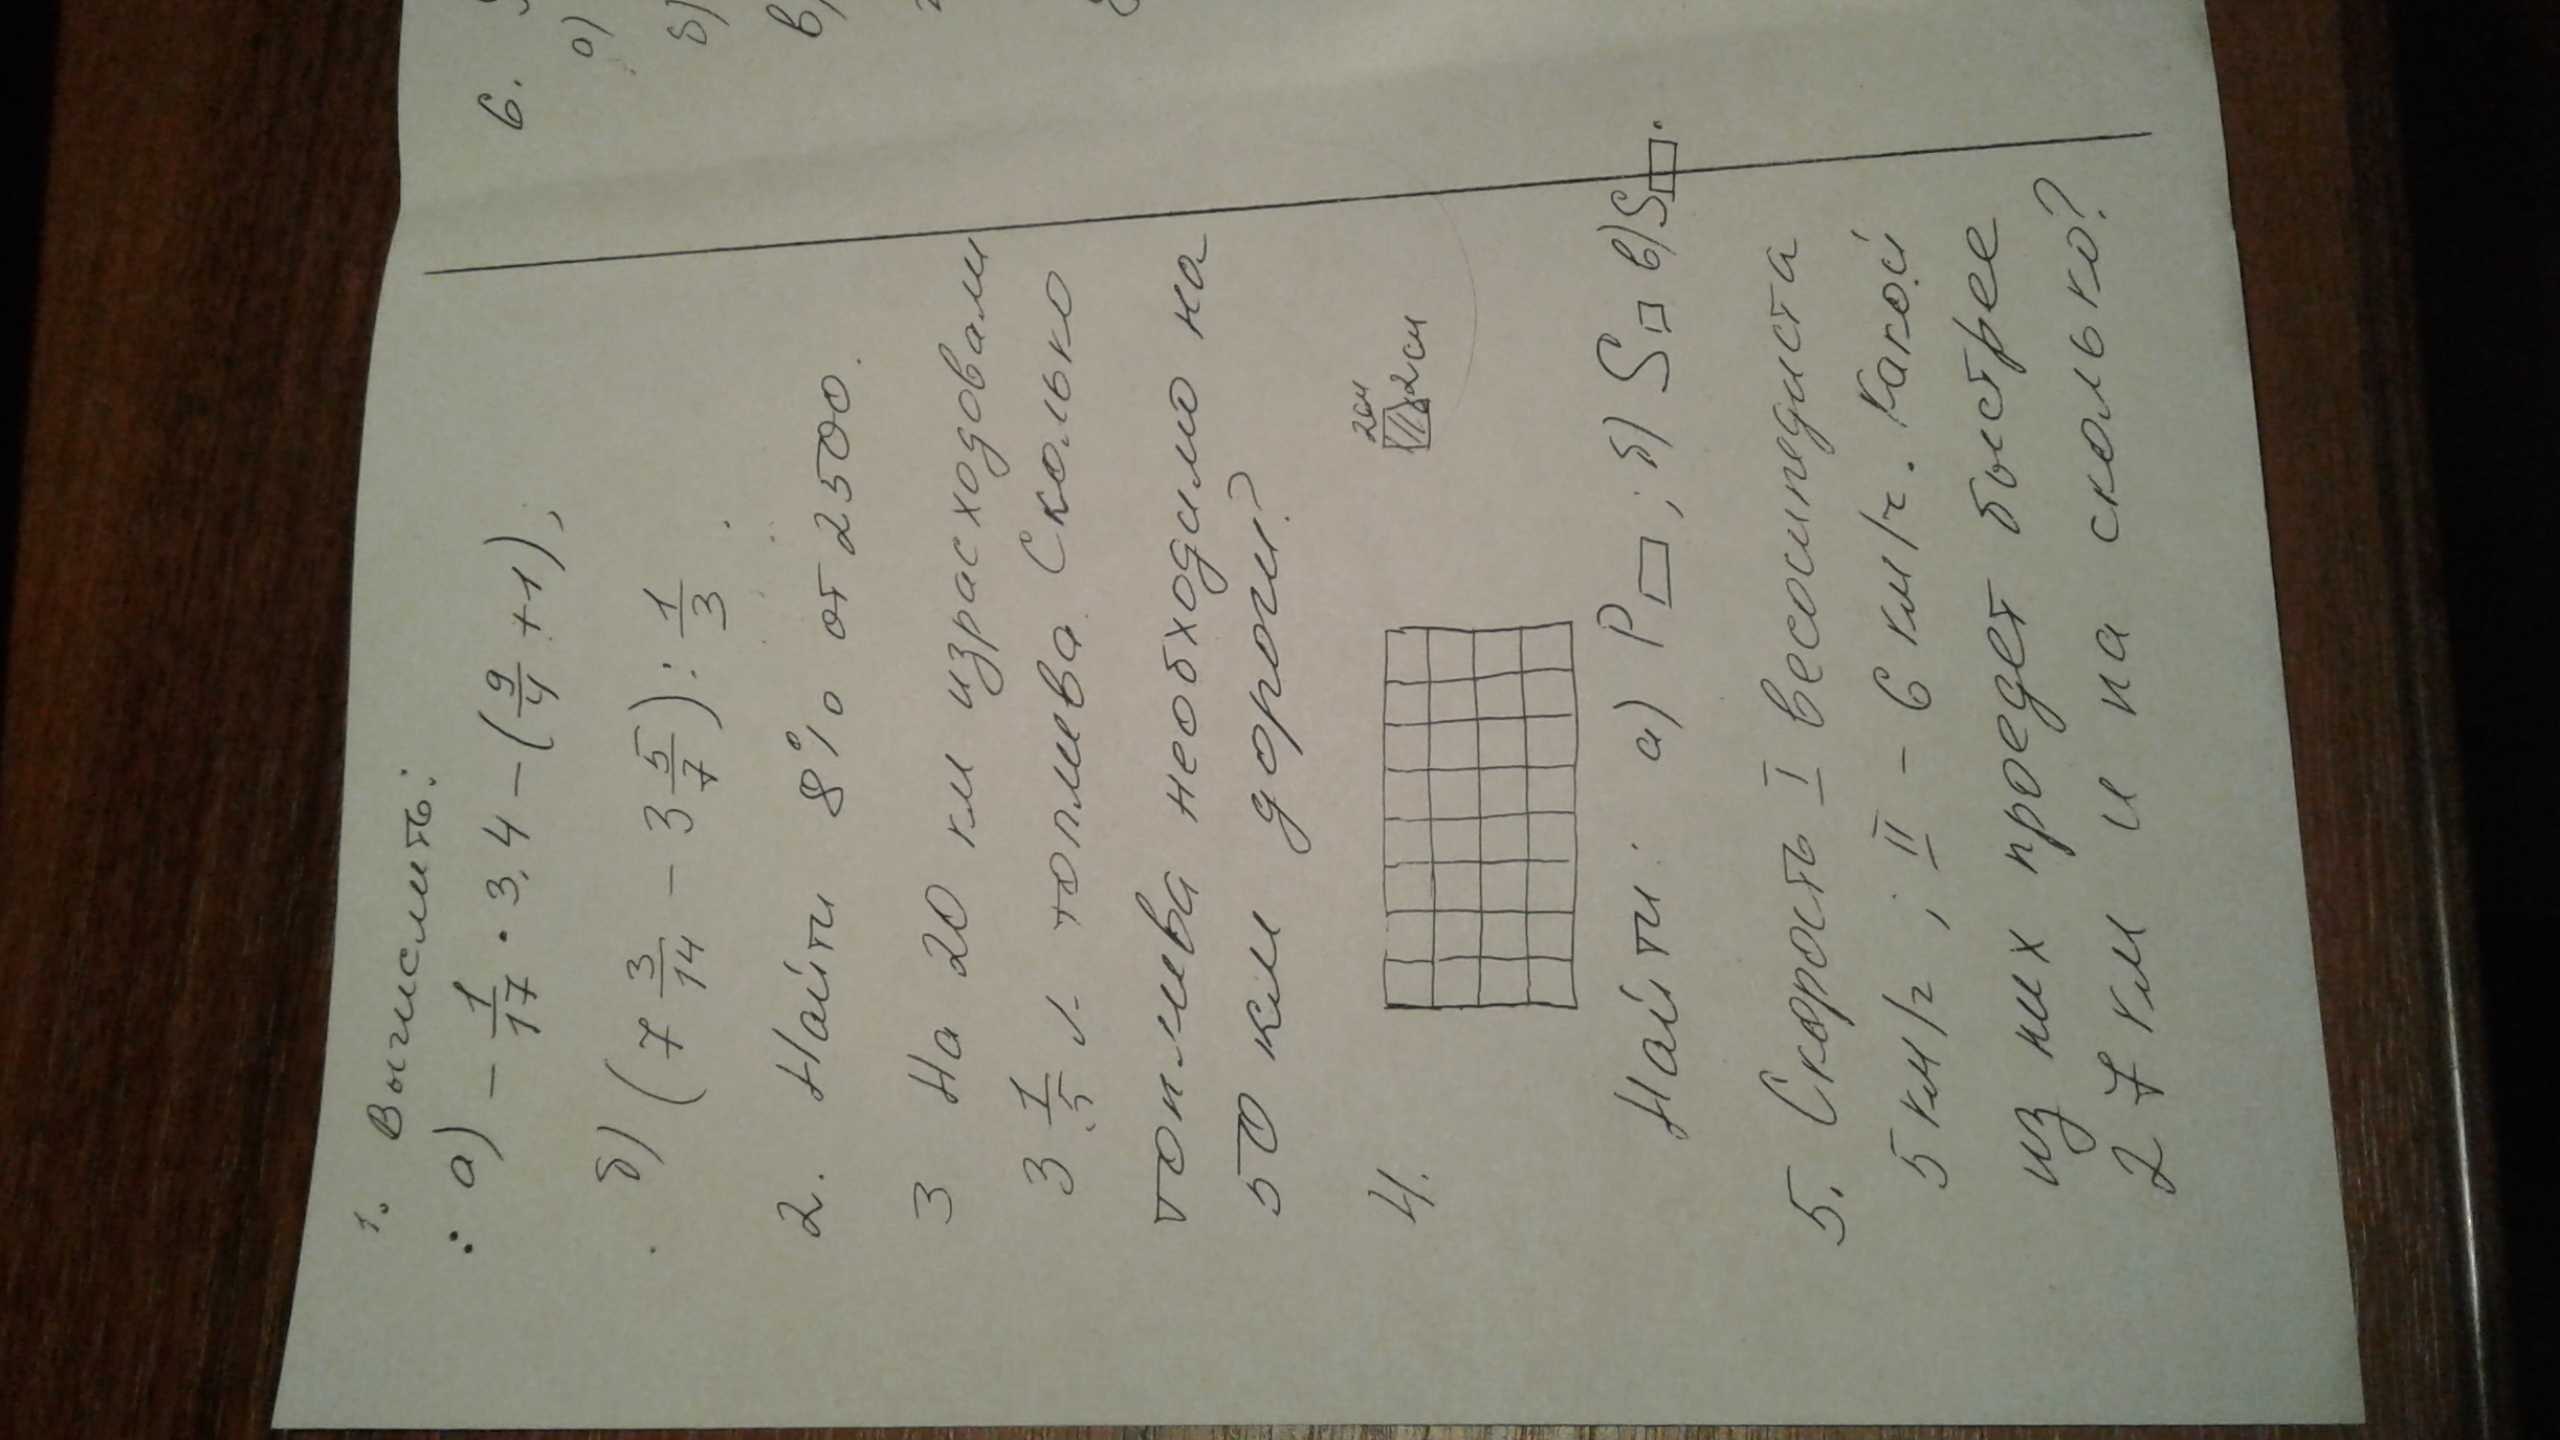 1. Вычислить:
а) - 1/17 · 3,4 - (9/4 + 1);
б) (7 3/14 - 3 5/7) : 1/3.
2. Найти 8% от 2500.
3 На 20 км израсходовали
3 1/5 л. топлива. Сколько
топлива необходимо на
50 км дороги?
4.
2см
2см
Найти: а) P□; б) S□ в) S▭.
5. Скорость I велосипедиста
5 км/ч; II - 6 км/ч. Какой
из них проедет быстрее
27 км и на сколько?
6.
а)
б)
в)